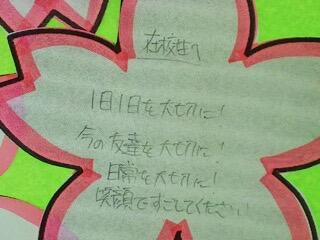 在校生へ
1日1日を大切に!
今の友達を大切に!
日常を大切に!
笑顔ですごしてください!